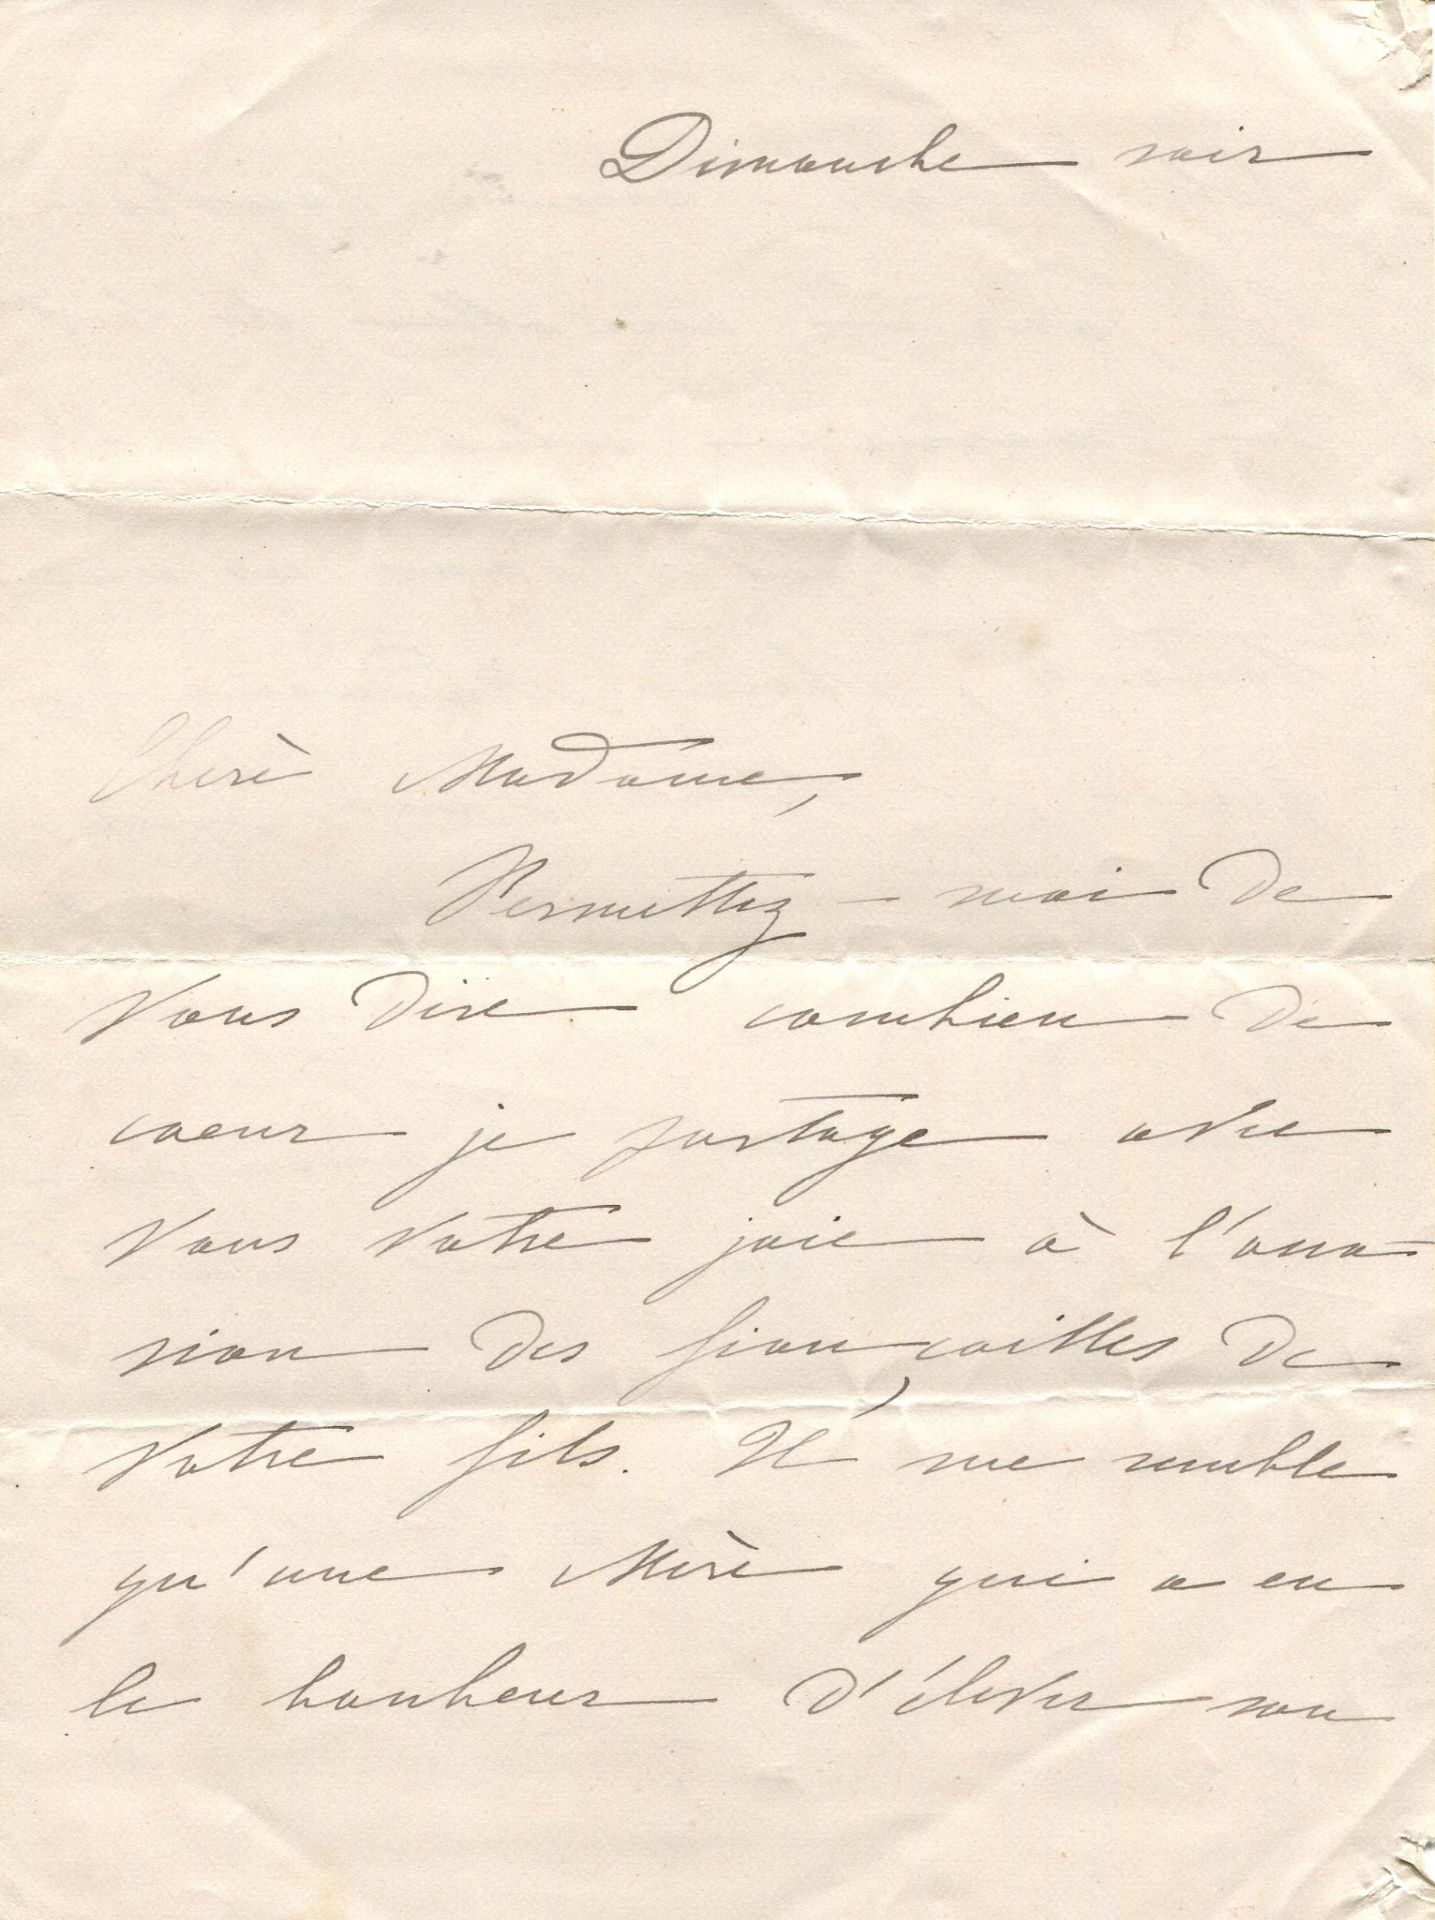 Dimanche soir
Chère Madame,
Permettez-moi de
vous dire combien de
coeur je partage avec
vous votre joie à l'occa-
sion des fiançailles de
votre fils. Il me semble
qu'une Mère qui a eu
le bonheur d'élever son